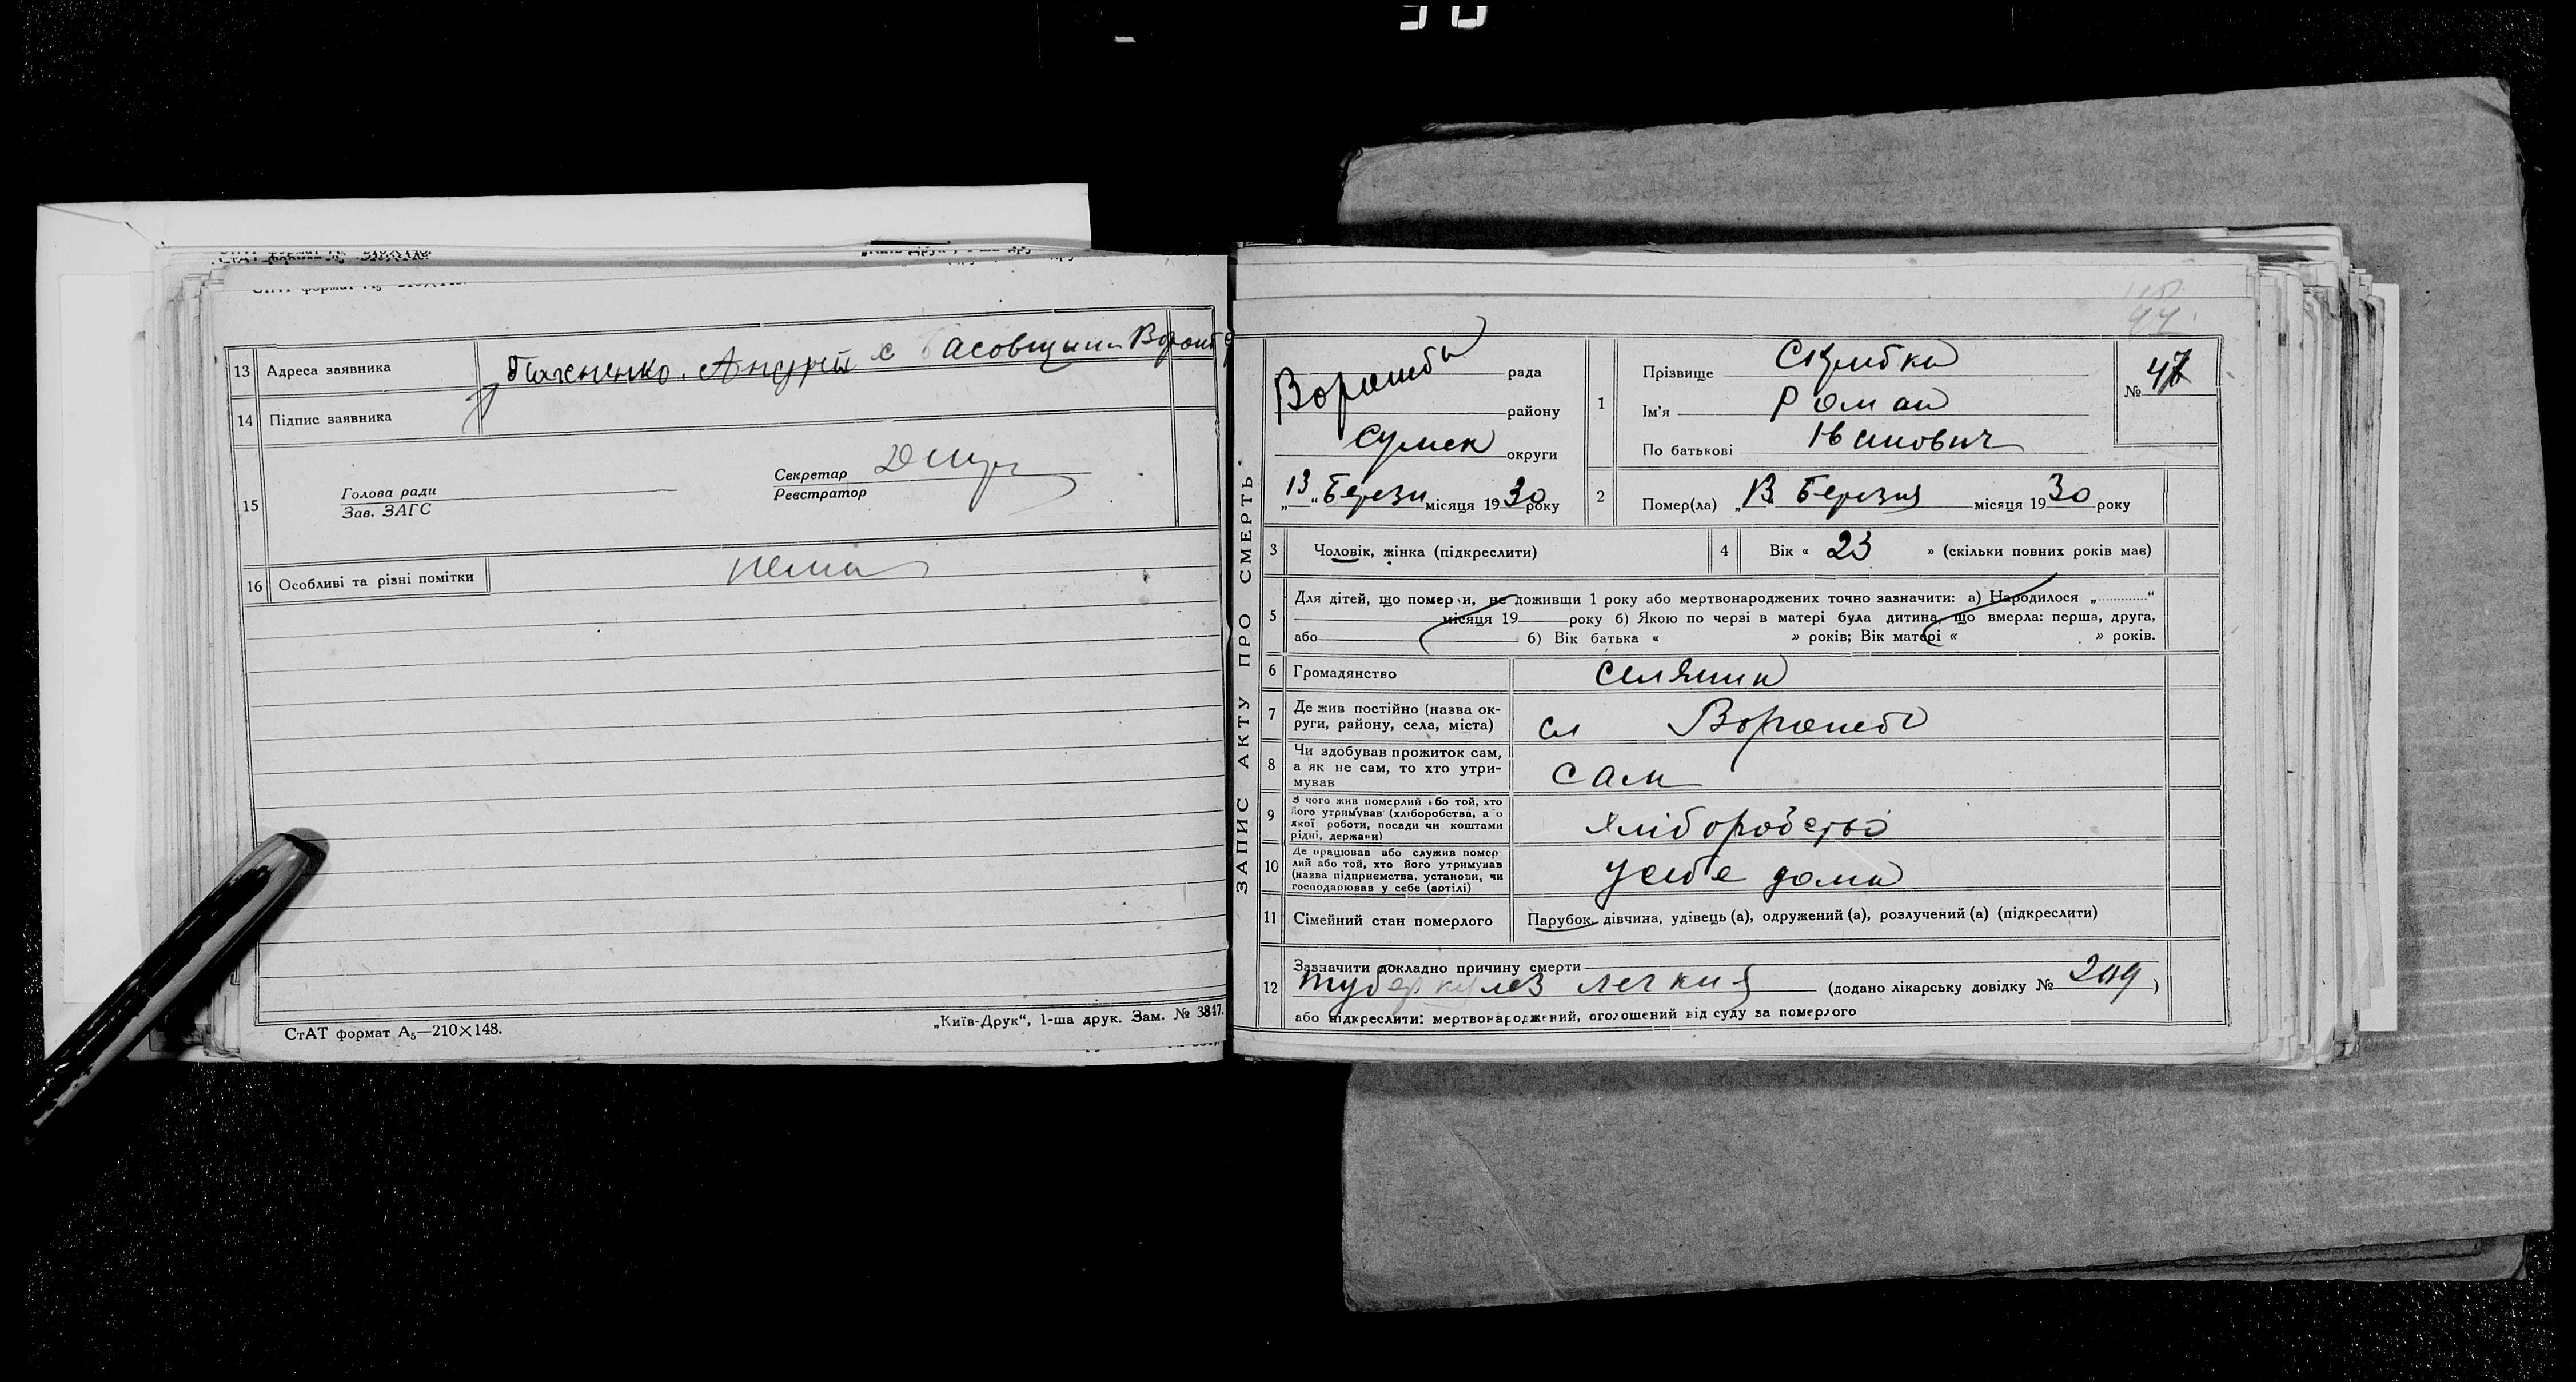 СтАТ формат А₅—210×148.
13 Адреса заявника Пахненко. Андрій с Басовщини Ворожб
14 Підпис заявника
15
Голова ради
Зав. ЗАГС
Секретар
Реєстратор
16 Особливі та різні помітки нема
СтАТ формат А₅—210×148.
„Київ-Друк“, 1-ша друк. Зам. № 3847.
ЗАПИС АКТУ ПРО СМЕРТЬ
97
Ворожба рада
району
Сумск округи
„13“ Березн місяця 1930 року
1 Прізвище
Ім'я Роман
По батькові Іванович
№ 47
2 Помер(ла) „13 Березня місяця 1930 року
3 Чоловік, жінка (підкреслити)
4 Вік « 23 » (скільки повних років має)
5 Для дітей, що померли, не доживши 1 року або мертвонароджених точно зазначити: а) Народилося „ “
місяця 19 року б) Якою по черзі в матері була дитина, що вмерла: перша, друга,
або б) Вік батька « » років; Вік матері « » років.
6 Громадянство селянин
7 Де жив постійно (назва ок-
руги, району, села, міста) сл Ворожба
8 Чи здобував прожиток сам,
а як не сам, то хто утри-
мував сам
9 З чого жив померлий або той, хто
його утримував (хліборобства, а о
якої роботи, посади чи коштами
рідні, держави) хліборобство
10 Де працював або служив помер
лий або той, хто його утримував
(назва підприємства, установи, чи
господарював у себе (артілі) у себе дома
11 Сімейний стан померлого Парубок, дівчина, удівець (а), одружений (а), розлучений (а) (підкреслити)
12 Зазначити докладно причину смерти
туберкулез легких (додано лікарську довідку № 209)
або підкреслити: мертвонароджений, оголошений від суду за померлого